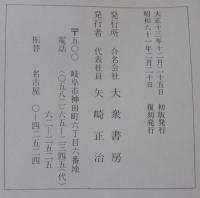 大正十三年十二月二十五日　初版発行
昭和六十一年二月二十日　復刻発行
発行所　合名会社　大衆書房
発行者　代表社員　矢崎正治
〒五〇〇　岐阜市神田町六丁目六番地
電話　(〇五八二)六五―三二四五(代)
六二―一五二五
振替　名古屋　〇―四二五二四